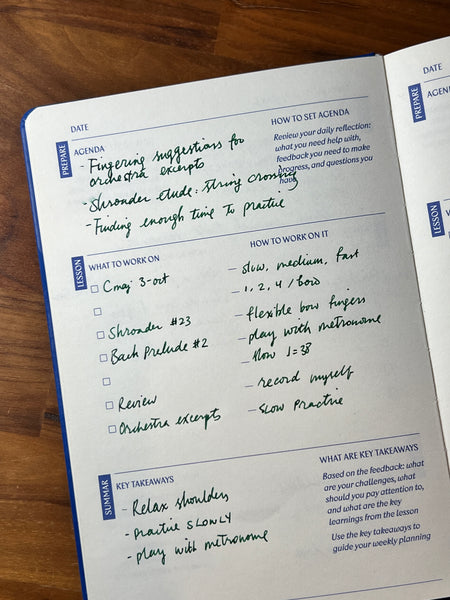 DATE
PREPARE
AGENDA
- Fingering suggestions for
orchestra excerpts
- Shroader etude: string crossing
- Finding enough time to practice
HOW TO SET AGENDA
Review your daily reflection:
what you need help with,
feedback you need to make
progress, and questions you
have
LESSON
WHAT TO WORK ON
HOW TO WORK ON IT
Cmaj 3-oct
- slow, medium, fast
- 1, 2, 4 / bow
Shroader #23
- flexible bow fingers
Bach Prelude #2
- play with metronome
- slow ♩=38
Review
- record myself
Orchestra excerpts
- slow practice
SUMMAR
KEY TAKEAWAYS
- Relax shoulders
- practice SLOWLY
- play with metronome
WHAT ARE KEY TAKEAWAYS
Based on the feedback: what
are your challenges, what
should you pay attention to,
and what are the key
learnings from the lesson
Use the key takeaways to
guide your weekly planning
DATE
PREPARE
AGEN
LESSON
W